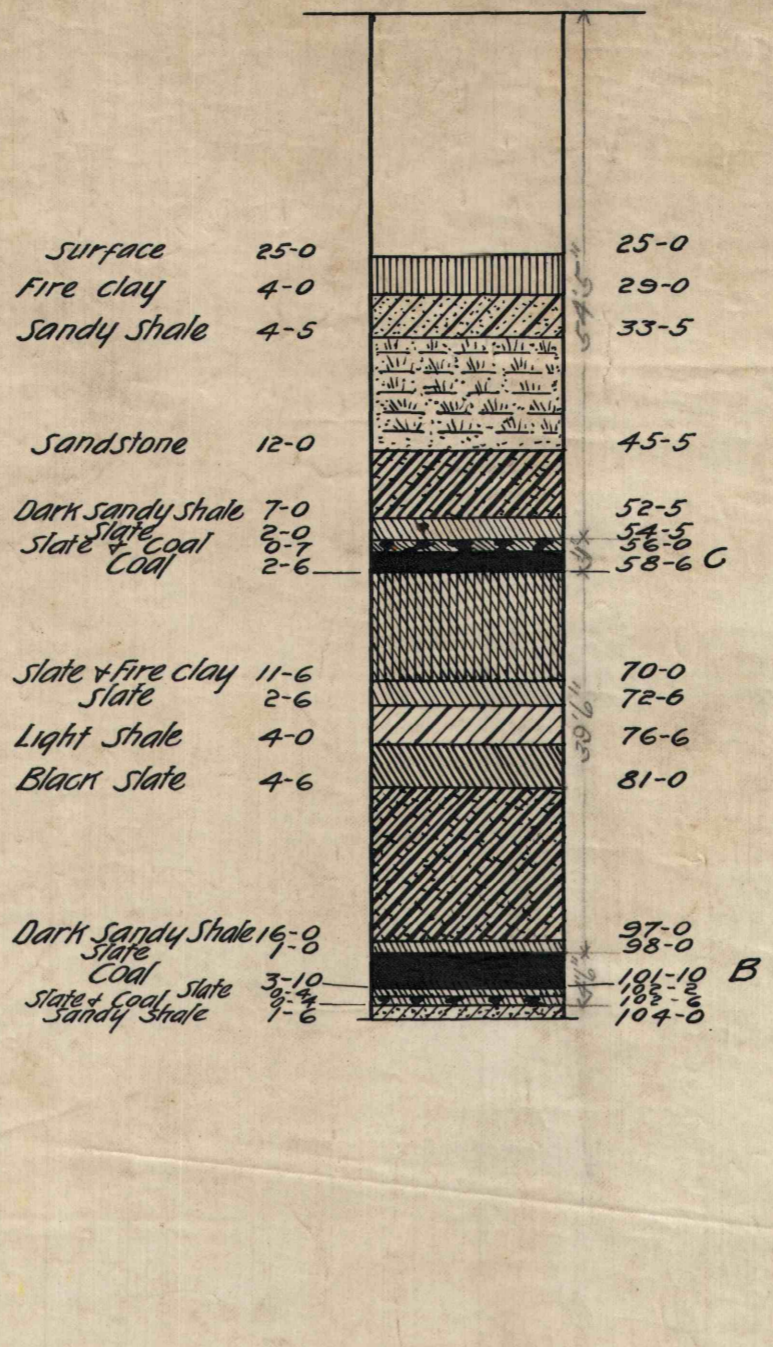 Surface 25-0 25-0
Fire clay 4-0 29-0
Sandy Shale 4-5 33-5
54'5"
Sandstone 12-0 45-5
Dark Sandy Shale 7-0 52-5
Slate 2-0 54-5
Slate & Coal 0-7 56-0
Coal 2-6 58-6 C
Slate & Fire clay 11-6 70-0
Slate 2-6 72-6
39'6"
Light Shale 4-0 76-6
Black Slate 4-6 81-0
Dark Sandy Shale 16-0 97-0
Slate 1-0 98-0
Coal 3-10 101-10 B
Slate 0-4 102-2
Slate & Coal 0-4 102-6
Sandy Shale 1-6 104-0